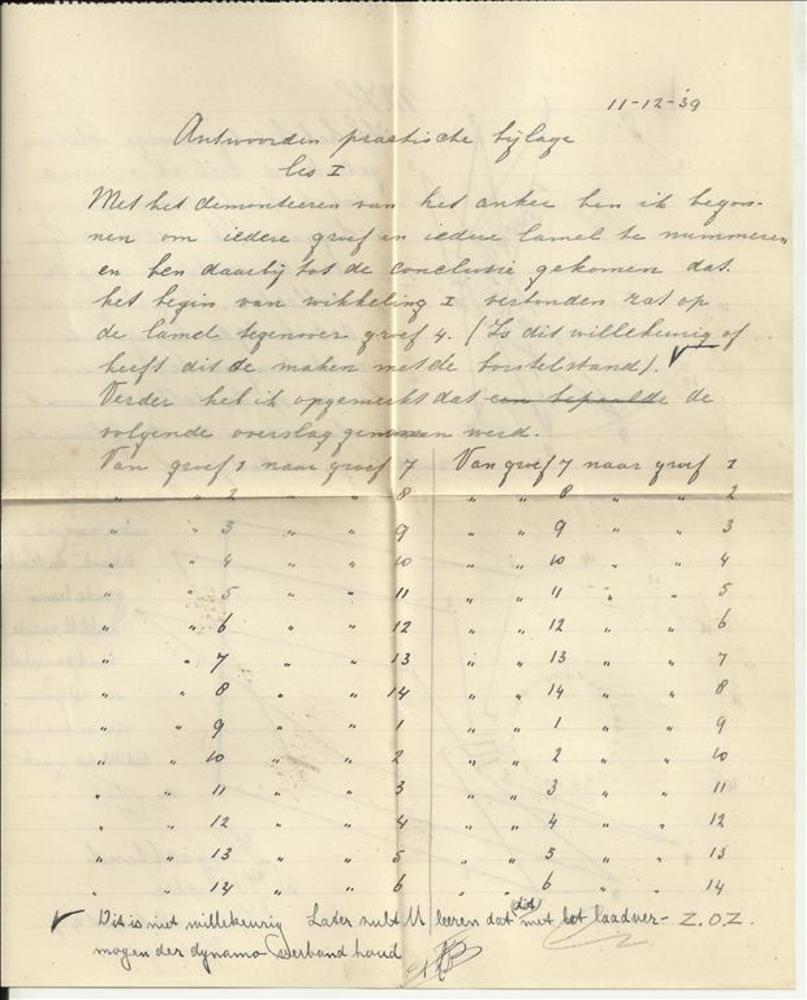 11-12-'39
Antwoorden practische bijlage
les I
Met het demonteeren van het anker ben ik begon-
nen om iedere groef en iedere lamel te nummeren
en ben daarbij tot de conclusie gekomen dat.
het begin van wikkeling I verbonden zat op
de lamel tegenover groef 4. (Is dit willekeurig of
heeft dit te maken met de borstelstand). √
Verder heb ik opgemerkt dat een bepaalde de
volgende overslag genomen werd.
Van groef 1 naar groef 7 Van groef 7 naar groef 1
" " 2 " " 8 " " 8 " " 2
" " 3 " " 9 " " 9 " " 3
" " 4 " " 10 " " 10 " " 4
" " 5 " " 11 " " 11 " " 5
" " 6 " " 12 " " 12 " " 6
" " 7 " " 13 " " 13 " " 7
" " 8 " " 14 " " 14 " " 8
" " 9 " " 1 " " 1 " " 9
" " 10 " " 2 " " 2 " " 10
" " 11 " " 3 " " 3 " " 11
" " 12 " " 4 " " 4 " " 12
" " 13 " " 5 " " 5 " " 13
" " 14 " " 6 " " 6 " " 14
√ Dit is niet willekeurig Later zult U leeren dat (dit) met het laadver- Z.O.Z.
mogen der dynamo verband houd